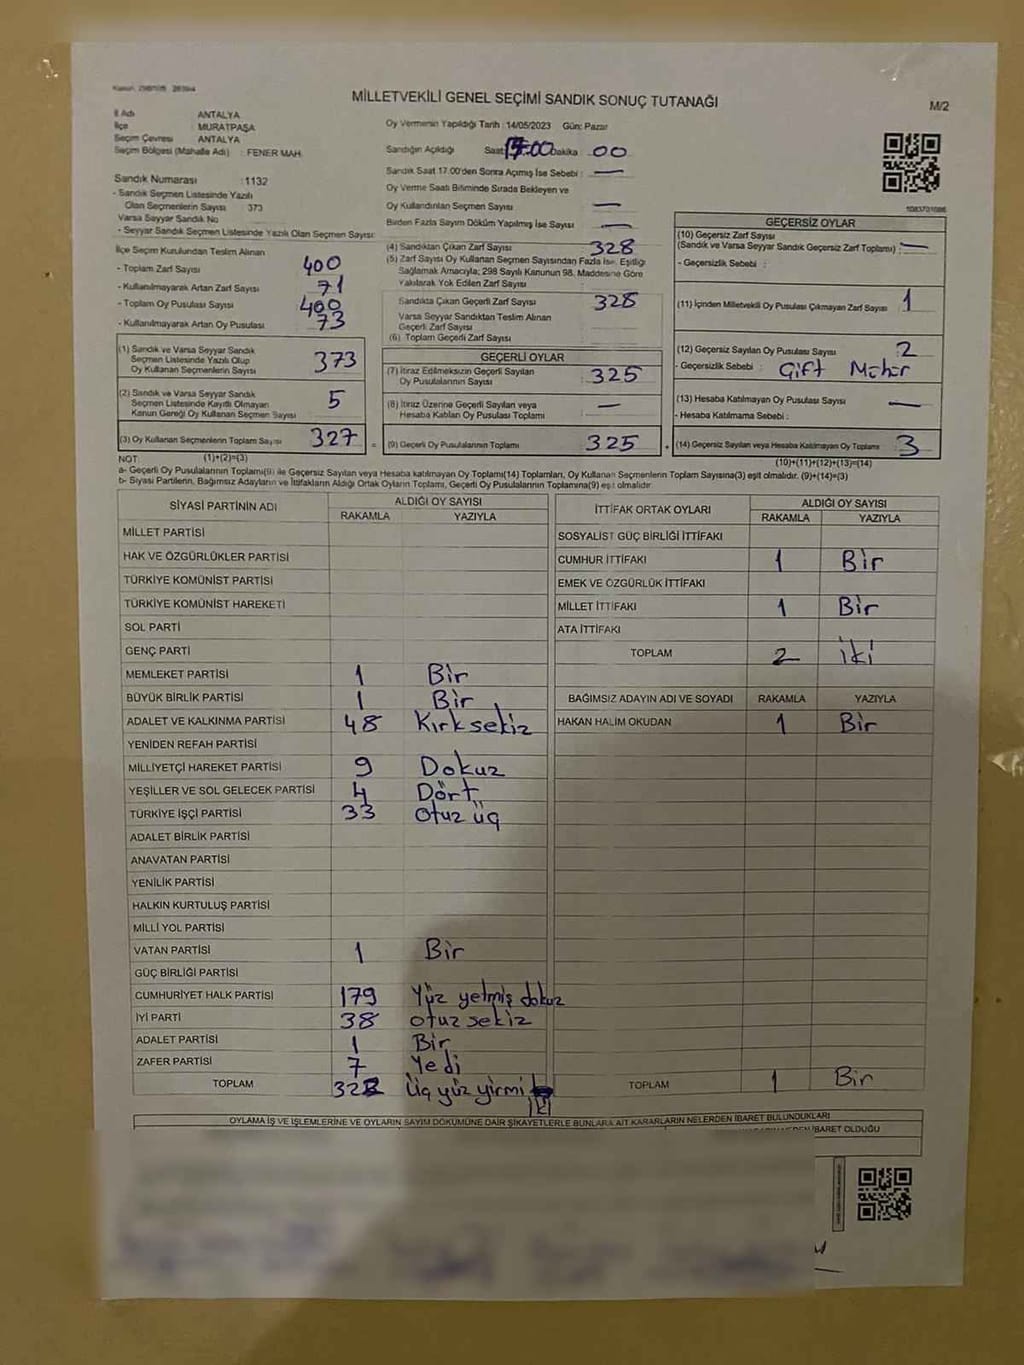 MİLLETVEKİLİ GENEL SEÇİMİ SANDIK SONUÇ TUTANAĞI
M/2
İl Adı ANTALYA
İlçe : MURATPAŞA
Seçim Çevresi : ANTALYA
Seçim Bölgesi (Mahalle Adı) : FENER MAH.
Sandık Numarası : 1132
- Sandık Seçmen Listesinde Yazılı
Olan Seçmenlerin Sayısı 373
Varsa Seyyar Sandık No
- Seyyar Sandık Seçmen Listesinde Yazılı Olan Seçmen Sayısı:
İlçe Seçim Kurulundan Teslim Alınan
- Toplam Zarf Sayısı 400
- Kullanılmayarak Artan Zarf Sayısı 71
- Toplam Oy Pusulası Sayısı 400
- Kullanılmayarak Artan Oy Pusulası 73
(1) Sandık ve Varsa Seyyar Sandık
Seçmen Listesinde Yazılı Olup
Oy Kullanan Seçmenlerin Sayısı 373
(2) Sandık ve Varsa Seyyar Sandık
Seçmen Listesinde Kayıtlı Olmayan
Kanun Gereği Oy Kullanan Seçmen Sayısı 5
(3) Oy Kullanan Seçmenlerin Toplam Sayısı 327
Oy Vermenin Yapıldığı Tarih :14/05/2023 Gün: Pazar
Sandığın Açıldığı Saat 17:00 Dakika 00
Sandık Saat 17.00'den Sonra Açılmış İse Sebebi : —
Oy Verme Saati Bitiminde Sırada Bekleyen ve
Oy Kullandırılan Seçmen Sayısı —
Birden Fazla Sayım Döküm Yapılmış İse Sayısı —
(4) Sandıktan Çıkan Zarf Sayısı 328
(5) Zarf Sayısı Oy Kullanan Seçmen Sayısından Fazla İse, Eşitliği
Sağlamak Amacıyla; 298 Sayılı Kanunun 98. Maddesine Göre
Yakılarak Yok Edilen Zarf Sayısı :
Sandıkta Çıkan Geçerli Zarf Sayısı 328
Varsa Seyyar Sandıktan Teslim Alınan
Geçerli Zarf Sayısı
(6) Toplam Geçerli Zarf Sayısı
GEÇERLİ OYLAR
(7) İtiraz Edilmeksizin Geçerli Sayılan
Oy Pusulalarının Sayısı : 325
(8) İtiraz Üzerine Geçerli Sayılan veya
Hesaba Katılan Oy Pusulası Toplamı —
= (9) Geçerli Oy Pusulalarının Toplamı 325
1083701086
GEÇERSİZ OYLAR
(10) Geçersiz Zarf Sayısı
(Sandık ve Varsa Seyyar Sandık Geçersiz Zarf Toplamı) : —
- Geçersizlik Sebebi :
(11) İçinden Milletvekili Oy Pusulası Çıkmayan Zarf Sayısı 1
(12) Geçersiz Sayılan Oy Pusulası Sayısı 2
- Geçersizlik Sebebi : Çift Mühür
(13) Hesaba Katılmayan Oy Pusulası Sayısı —
- Hesaba Katılmama Sebebi :
+ (14) Geçersiz Sayılan veya Hesaba Katılmayan Oy Toplamı 3
NOT: (1)+(2)=(3)
(10)+(11)+(12)+(13)=(14)
a- Geçerli Oy Pusulalarının Toplamı(9) ile Geçersiz Sayılan veya Hesaba katılmayan Oy Toplamı(14) Toplamları, Oy Kullanan Seçmenlerin Toplam Sayısına(3) eşit olmalıdır. (9)+(14)=(3)
b- Siyasi Partilerin, Bağımsız Adayların ve İttifakların Aldığı Ortak Oyların Toplamı, Geçerli Oy Pusulalarının Toplamına(9) eşit olmalıdır
SİYASİ PARTİNİN ADI ALDIĞI OY SAYISI
RAKAMLA YAZIYLA
MİLLET PARTİSİ
HAK VE ÖZGÜRLÜKLER PARTİSİ
TÜRKİYE KOMÜNİST PARTİSİ
TÜRKİYE KOMÜNİST HAREKETİ
SOL PARTİ
GENÇ PARTİ
MEMLEKET PARTİSİ 1 Bir
BÜYÜK BİRLİK PARTİSİ 1 Bir
ADALET VE KALKINMA PARTİSİ 48 Kırk sekiz
YENİDEN REFAH PARTİSİ
MİLLİYETÇİ HAREKET PARTİSİ 9 Dokuz
YEŞİLLER VE SOL GELECEK PARTİSİ 4 Dört
TÜRKİYE İŞÇİ PARTİSİ 33 Otuz üç
ADALET BİRLİK PARTİSİ
ANAVATAN PARTİSİ
YENİLİK PARTİSİ
HALKIN KURTULUŞ PARTİSİ
MİLLİ YOL PARTİSİ
VATAN PARTİSİ 1 Bir
GÜÇ BİRLİĞİ PARTİSİ
CUMHURİYET HALK PARTİSİ 179 Yüz yetmiş dokuz
İYİ PARTİ 38 otuz sekiz
ADALET PARTİSİ 1 Bir
ZAFER PARTİSİ 7 Yedi
TOPLAM 322 Üç yüz yirmi
iki
İTTİFAK ORTAK OYLARI ALDIĞI OY SAYISI
RAKAMLA YAZIYLA
SOSYALİST GÜÇ BİRLİĞİ İTTİFAKI
CUMHUR İTTİFAKI 1 Bir
EMEK VE ÖZGÜRLÜK İTTİFAKI
MİLLET İTTİFAKI 1 Bir
ATA İTTİFAKI
TOPLAM 2 iki
BAĞIMSIZ ADAYIN ADI VE SOYADI RAKAMLA YAZIYLA
HAKAN HALİM OKUDAN 1 Bir
TOPLAM 1 Bir
OYLAMA İŞ VE İŞLEMLERİNE VE OYLARIN SAYIM DÖKÜMÜNE DAİR ŞİKAYETLERLE BUNLARA AİT KARARLARIN NELERDEN İBARET BULUNDUKLARI
İBARET OLDUĞU